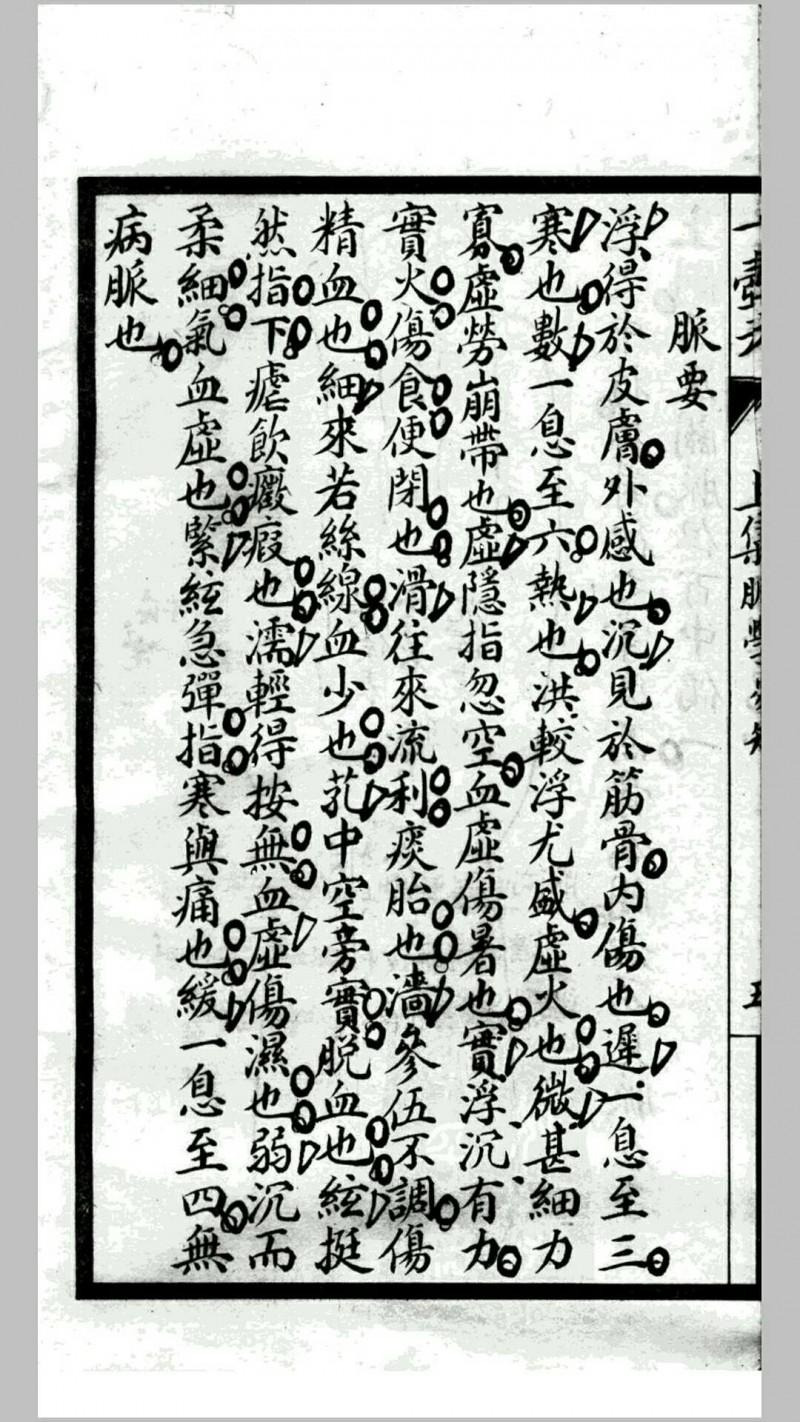 一壺
上集脈學
脈要
浮得於皮膚外感也沉見於筋骨内傷也遲一息至三
寒也數一息至六熱也洪較浮尤盛虛火也微甚細力
寡虛勞崩帶也虛隱指忽空血虛傷暑也實浮沉有力
實火傷食便閉也滑往來流利痰胎也濇參伍不調傷
精血也細來若絲線血少也芤中空旁實脱血也絃挺
然指下瘧飲癥瘕也濡輕得按無血虛傷濕也弱沉而
柔細氣血虛也緊絃急彈指寒與痛也緩一息至四無
病脈也